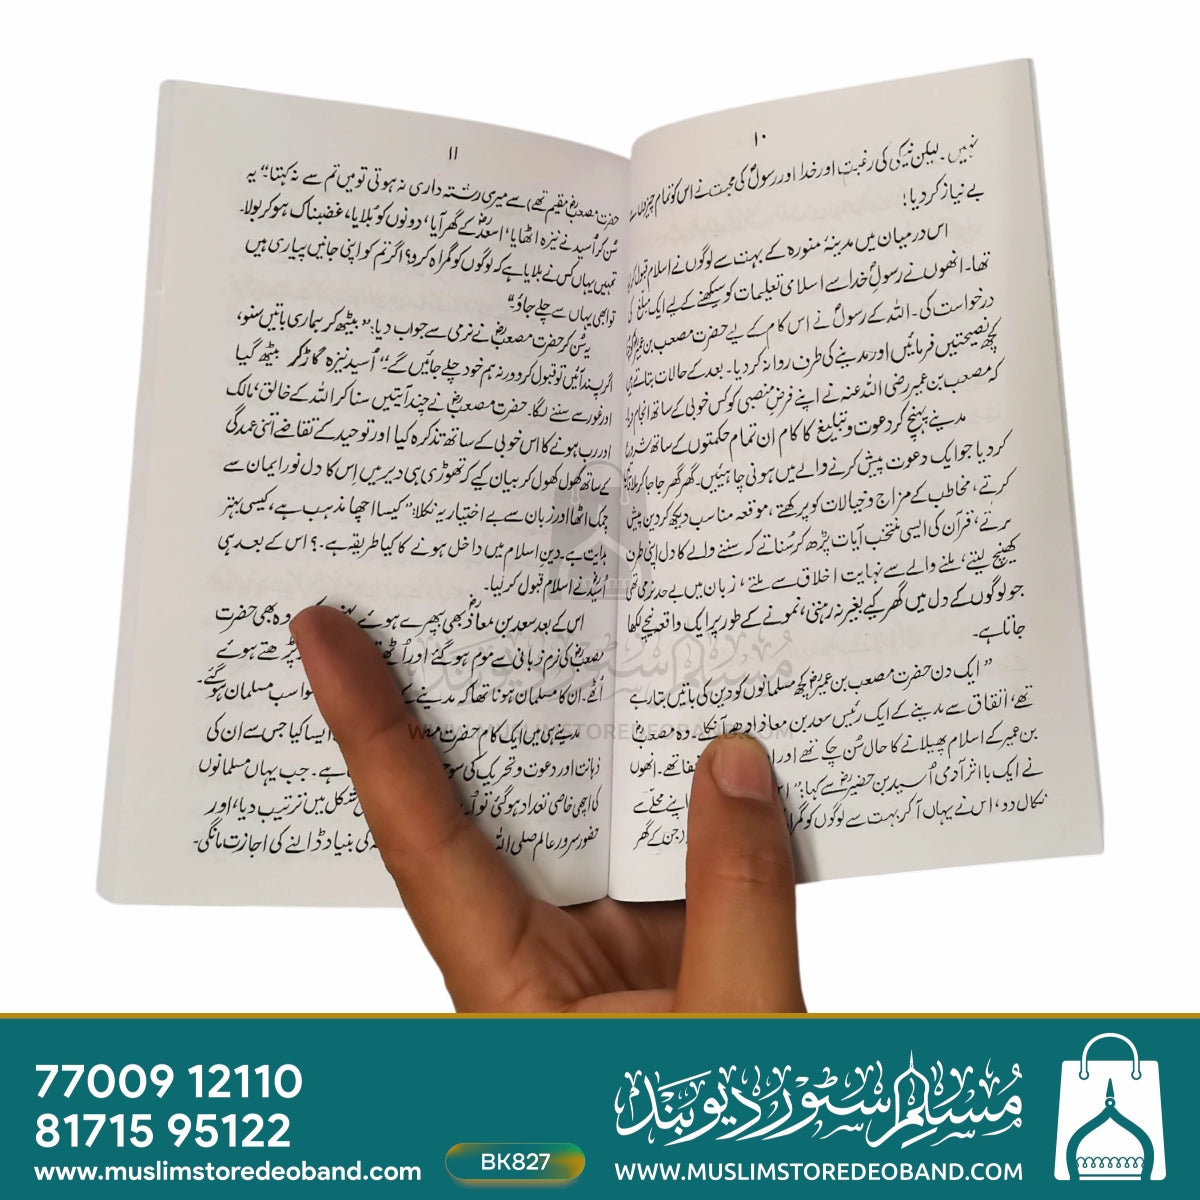 ۱۰
نہیں۔ لیکن نیکی کی رغبت اور خدا اور رسولؐ کی محبت نے اس کو تمام چیزوں سے
بے نیاز کر دیا؛
اس درمیان میں مدینۂ منورہ کے بہت سے لوگوں نے اسلام قبول کر
تھا۔ انھوں نے رسولِؐ خدا سے اسلامی تعلیمات کو سیکھنے کے لیے ایک مبلغ کی
درخواست کی۔ اللہ کے رسولؐ نے اس کام کے لیے حضرت مصعب بن عمیرؓ کو
کچھ نصیحتیں فرمائیں اور مدینے کی طرف روانہ کر دیا۔ بعد کے حالات بتاتے ہیں
کہ مصعب بن عمیر رضی اللہ عنہ نے اپنے فرضِ منصبی کو کس خوبی کے ساتھ انجام دیا۔
مدینے پہنچ کر دعوت و تبلیغ کا کام ان تمام حکمتوں کے ساتھ شروع
کر دیا جو ایک دعوت پیش کرنے والے میں ہونی چاہئیں۔ گھر گھر جا جا کر ملاقاتیں
کرتے، مخاطب کے مزاج و خیالات کو پرکھتے، موقعہ مناسب دیکھ کر دین پیش
کرتے، قرآن کی ایسی منتخب آیات پڑھ کر سُناتے کہ سننے والے کا دل اپنی طرف
کھینچ لیتے، ملنے والے سے نہایت اخلاق سے ملتے، زبان میں بے حد نرمی تھی
جو لوگوں کے دل میں گھر کیے بغیر نہ رہتی، نمونے کے طور پر ایک واقعہ نیچے لکھا
جاتا ہے۔
" ایک دن حضرت مصعب بن عمیرؓ کچھ مسلمانوں کو دین کی باتیں بتا رہے
تھے، اتفاق سے مدینے کے ایک رئیس سعد بن معاذ ادھر آنکلے۔ وہ مصعبؓ
بن عمیر کے اسلام پھیلانے کا حال سُن چکے تھے اور ا فا تھے۔ انھوں
نے ایک با اثر آدمی اُسید بن حضیرؓ سے کہا: " اپنے محلّے سے
نکال دو، اس نے یہاں آکر بہت سے لوگوں کو گمرا د جن کے گھر
۱۱
حضرت مصعبؓ مقیم تھے) سے میری رشتہ داری نہ ہوتی تو میں تم سے نہ کہتا۔" یہ
سُن کر اُسید نے نیزہ اٹھایا، اسعدؓ کے گھر آیا، دونوں کو بُلایا، غضبناک ہو کر بولا۔
تمہیں یہاں کس نے بلایا ہے کہ لوگوں کو گمراہ کرو؟ اگر تم کو اپنی جانیں پیاری ہیں
تو ابھی یہاں سے چلے جاؤ"
یہ سُن کر حضرت مصعبؓ نے نرمی سے جواب دیا: "بیٹھ کر ہماری باتیں سنو،
اگر پسند آئیں تو قبول کرو ورنہ ہم خود چلے جائیں گے۔" اُسید نیزہ گاڑ کر بیٹھ گیا
اور غور سے سننے لگا۔ حضرت مصعبؓ نے چند آیتیں سنا کر اللہ کے خالق، مالک
اور رب ہونے کا اس خوبی کے ساتھ تذکرہ کیا اور توحید کے تقاضے اتنی عمدگی
کے ساتھ کھول کھول کر بیان کیے کہ تھوڑی ہی دیر میں اِس کا دل نورِ ایمان سے
چمک اٹھا اور زبان سے بے اختیار یہ نکلا: "کیسا اچھا مذہب ہے، کیسی بہتر
ہدایت ہے۔ دینِ اسلام میں داخل ہونے کا کیا طریقہ ہے۔؟ اس کے بعد ہی
اُسیدؓ نے اسلام قبول کر لیا۔
اس کے بعد سعد بن معاذؓ بھی بپھرے ہوئے وہ بھی حضرت
مصعبؓ کی نرم زبانی سے موم ہو گئے اور اُٹھے پڑھتے ہوئے
اُٹھے۔ ان کا مسلمان ہونا تھا کہ مدینے کے سوا سب مسلمان ہو گئے۔
مدینے ہی میں ایک کام حضرت مصعب ایسا کیا جس سے ان کی
ذہانت اور دعوت و تحریک کی سوجھ ہے۔ جب یہاں مسلمانوں
کی اچھی خاصی تعداد ہو گئی تو اُ شکل میں ترتیب دیا، اور
حضور سرورِ عالم صلی اللہ کی بنیاد ڈالنے کی اجازت مانگی۔
مسلم سٹور دیوبند
WWW.MUSLIMSTOREDEOBAND.COM
77009 12110
81715 95122
www.muslimstoredeoband.com
BK827
مسلم سٹور دیوبند
WWW.MUSLIMSTOREDEOBAND.COM